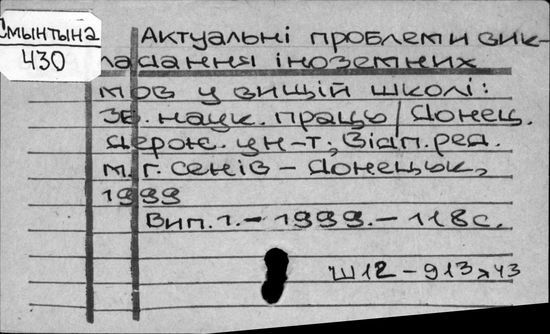 Смынтына
430
Актуальні проблеми вик-
ладання іноземних
мов у вищій школі:
Зб. наук. праць / Донец.
держ. ун-т; Відп. ред.
М.Г. Сенів - Донецьк,
1999
Вип. 1. - 1999. - 118с.
Ш12-913я43